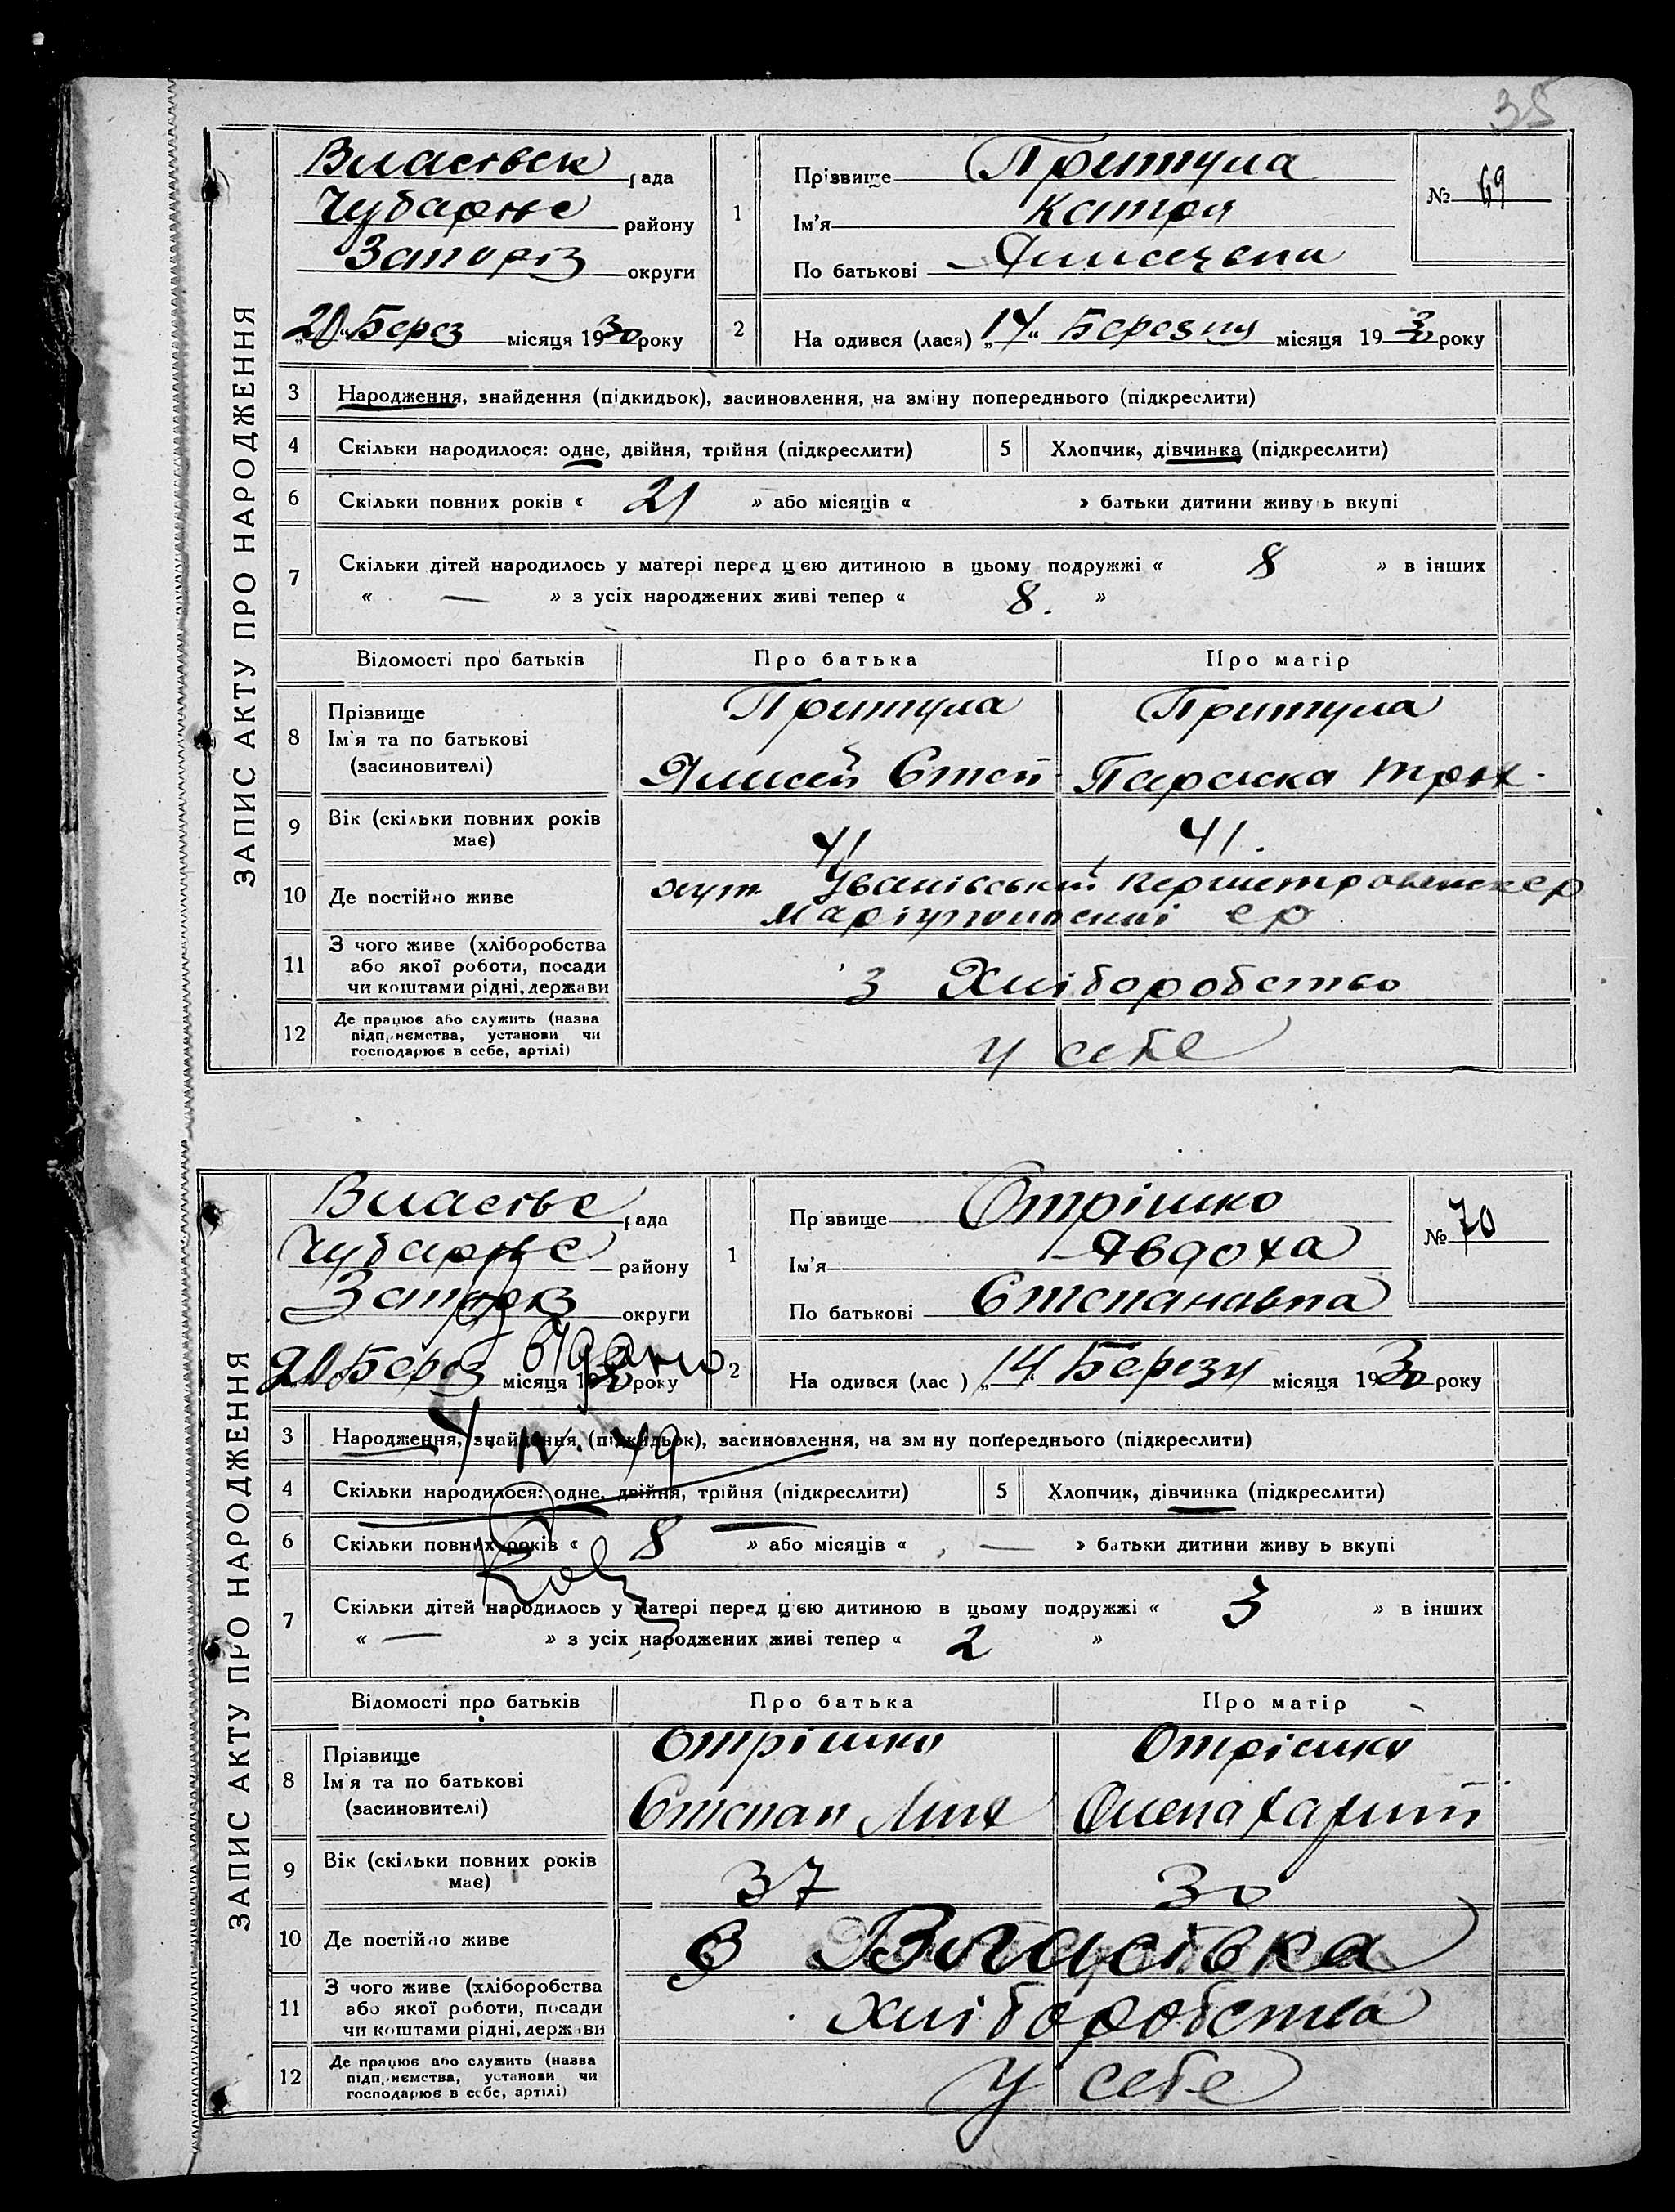 35
ЗАПИС АКТУ ПРО НАРОДЖЕННЯ
Власівськ рада
Чубарівс району
Запоріз округи
„20“ Берез місяця 1930 року
1
Прізвище Притула
Ім'я Катря
По батькові
№ 69
2
На одився (лася) „14“ Березня місяця 1930 року
3 Народження, знайдення (підкидьок), засиновлення, на зміну попереднього (підкреслити)
4 Скільки народилося: одне, двійня, трійня (підкреслити)
5 Хлопчик, дівчинка (підкреслити)
6 Скільки повних років « 21 » або місяців « » батьки дитини живу ь вкупі
7 Скільки дітей народилось у матері перед цією дитиною в цьому подружжі « 8 » в інших
« — » з усіх народжених живі тепер « 8. »
Відомості про батьків Про батька Про матір
8 Прізвище
Ім'я та по батькові
(засиновителі)
Притула Притула
Ялисей Степ Параска Троx.
9 Вік (скільки повних років
має)
41 41.
10 Де постійно живе
хут Іванівський
ср
11 З чого живе (хліборобства
або якої роботи, посади
чи коштами рідні, держави
з Хліборобство
12 Де працює або служить (назва
підприємства, установи чи
господарює в себе, артілі)
у себе
ЗАПИС АКТУ ПРО НАРОДЖЕННЯ
Власівс рада
Чубарівс району
Запоріз округи
20 Берез місяця 1930 року
1
Пр звище Отрішко
Ім'я Явдоха
По батькові Степанавна
№ 70
2
На одився (лас ) „14“ Березн місяця 1930 року
3 Народження, знайдення (підкидьок), засиновлення, на зм ну попереднього (підкреслити)
4 Скільки народилося: одне, двійня, трійня (підкреслити)
5 Хлопчик, дівчинка (підкреслити)
6 Скільки повних років « 8 » або місяців « — » батьки дитини живу ь вкупі
7 Скільки дітей народилось у матері перед цією дитиною в цьому подружжі « 3 » в інших
« — » з усіх народжених живі тепер « 2 »
Відомості про батьків Про батька Про матір
8 Прізвище
Ім'я та по батькові
(засиновителі)
Отрішко Отрішко
Степан Мих Олена Харит
9 Вік (скільки повних років
має)
37 30
10 Де постійно живе
В Власівка
11 З чого живе (хліборобства
або якої роботи, посади
чи коштами рідні, держ ви
Хліборобства
12 Де працює або служить (назва
підприємства, установи чи
господарює в себе, артілі)
У себе